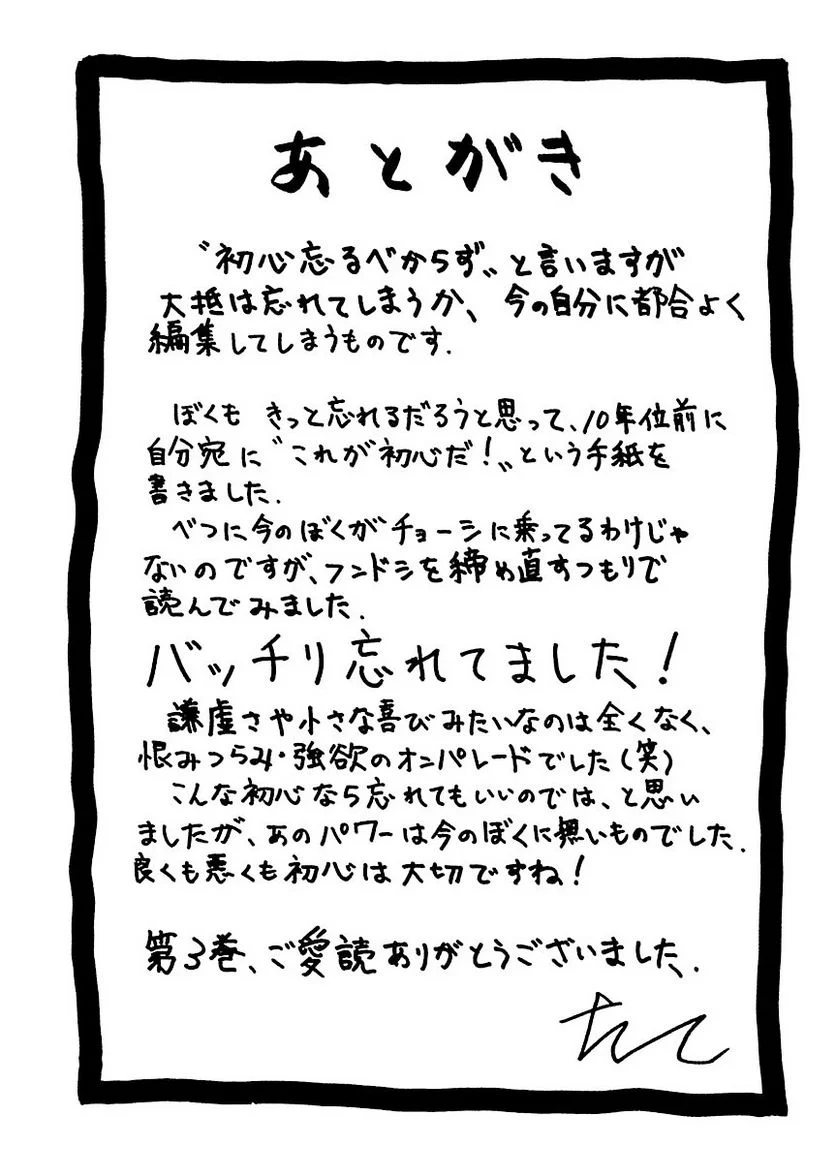 あとがき
〝初心忘るべからず〟と言いますが
大抵は忘れてしまうか、今の自分に都合よく
編集してしまうものです.
ぼくも きっと忘れるだろうと思って、10年位前に
自分宛に〝これが初心だ!〟という手紙を
書きました.
べつに今のぼくがチョーシに乗ってるわけじゃ
ないのですが、フンドシを締め直すつもりで
読んでみました.
バッチリ忘れてました!
謙虚さや小さな喜びみたいなのは全くなく、
恨みつらみ・強欲のオンパレードでした(笑)
こんな初心なら忘れてもいいのでは、と思い
ましたが、あのパワーは今のぼくに無いものでした.
良くも悪くも初心は大切ですね!
第3巻、ご愛読ありがとうございました.